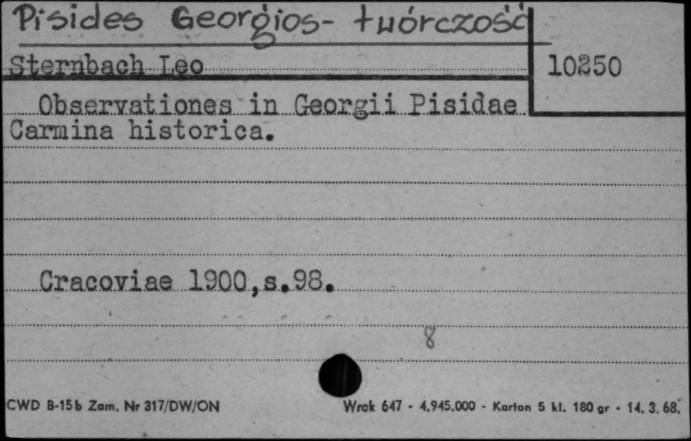 Pisides Georgios - twórczość
Sternbach Leo
10250
Observationes in Georgii Pisidae
Carmina historica.
Cracoviae 1900, s. 98.
8
CWD B-15b Zam. Nr 317/DW/ON
Wrak 647 - 4.945.000 - Karton 5 kl. 180 gr - 14. 3. 68.